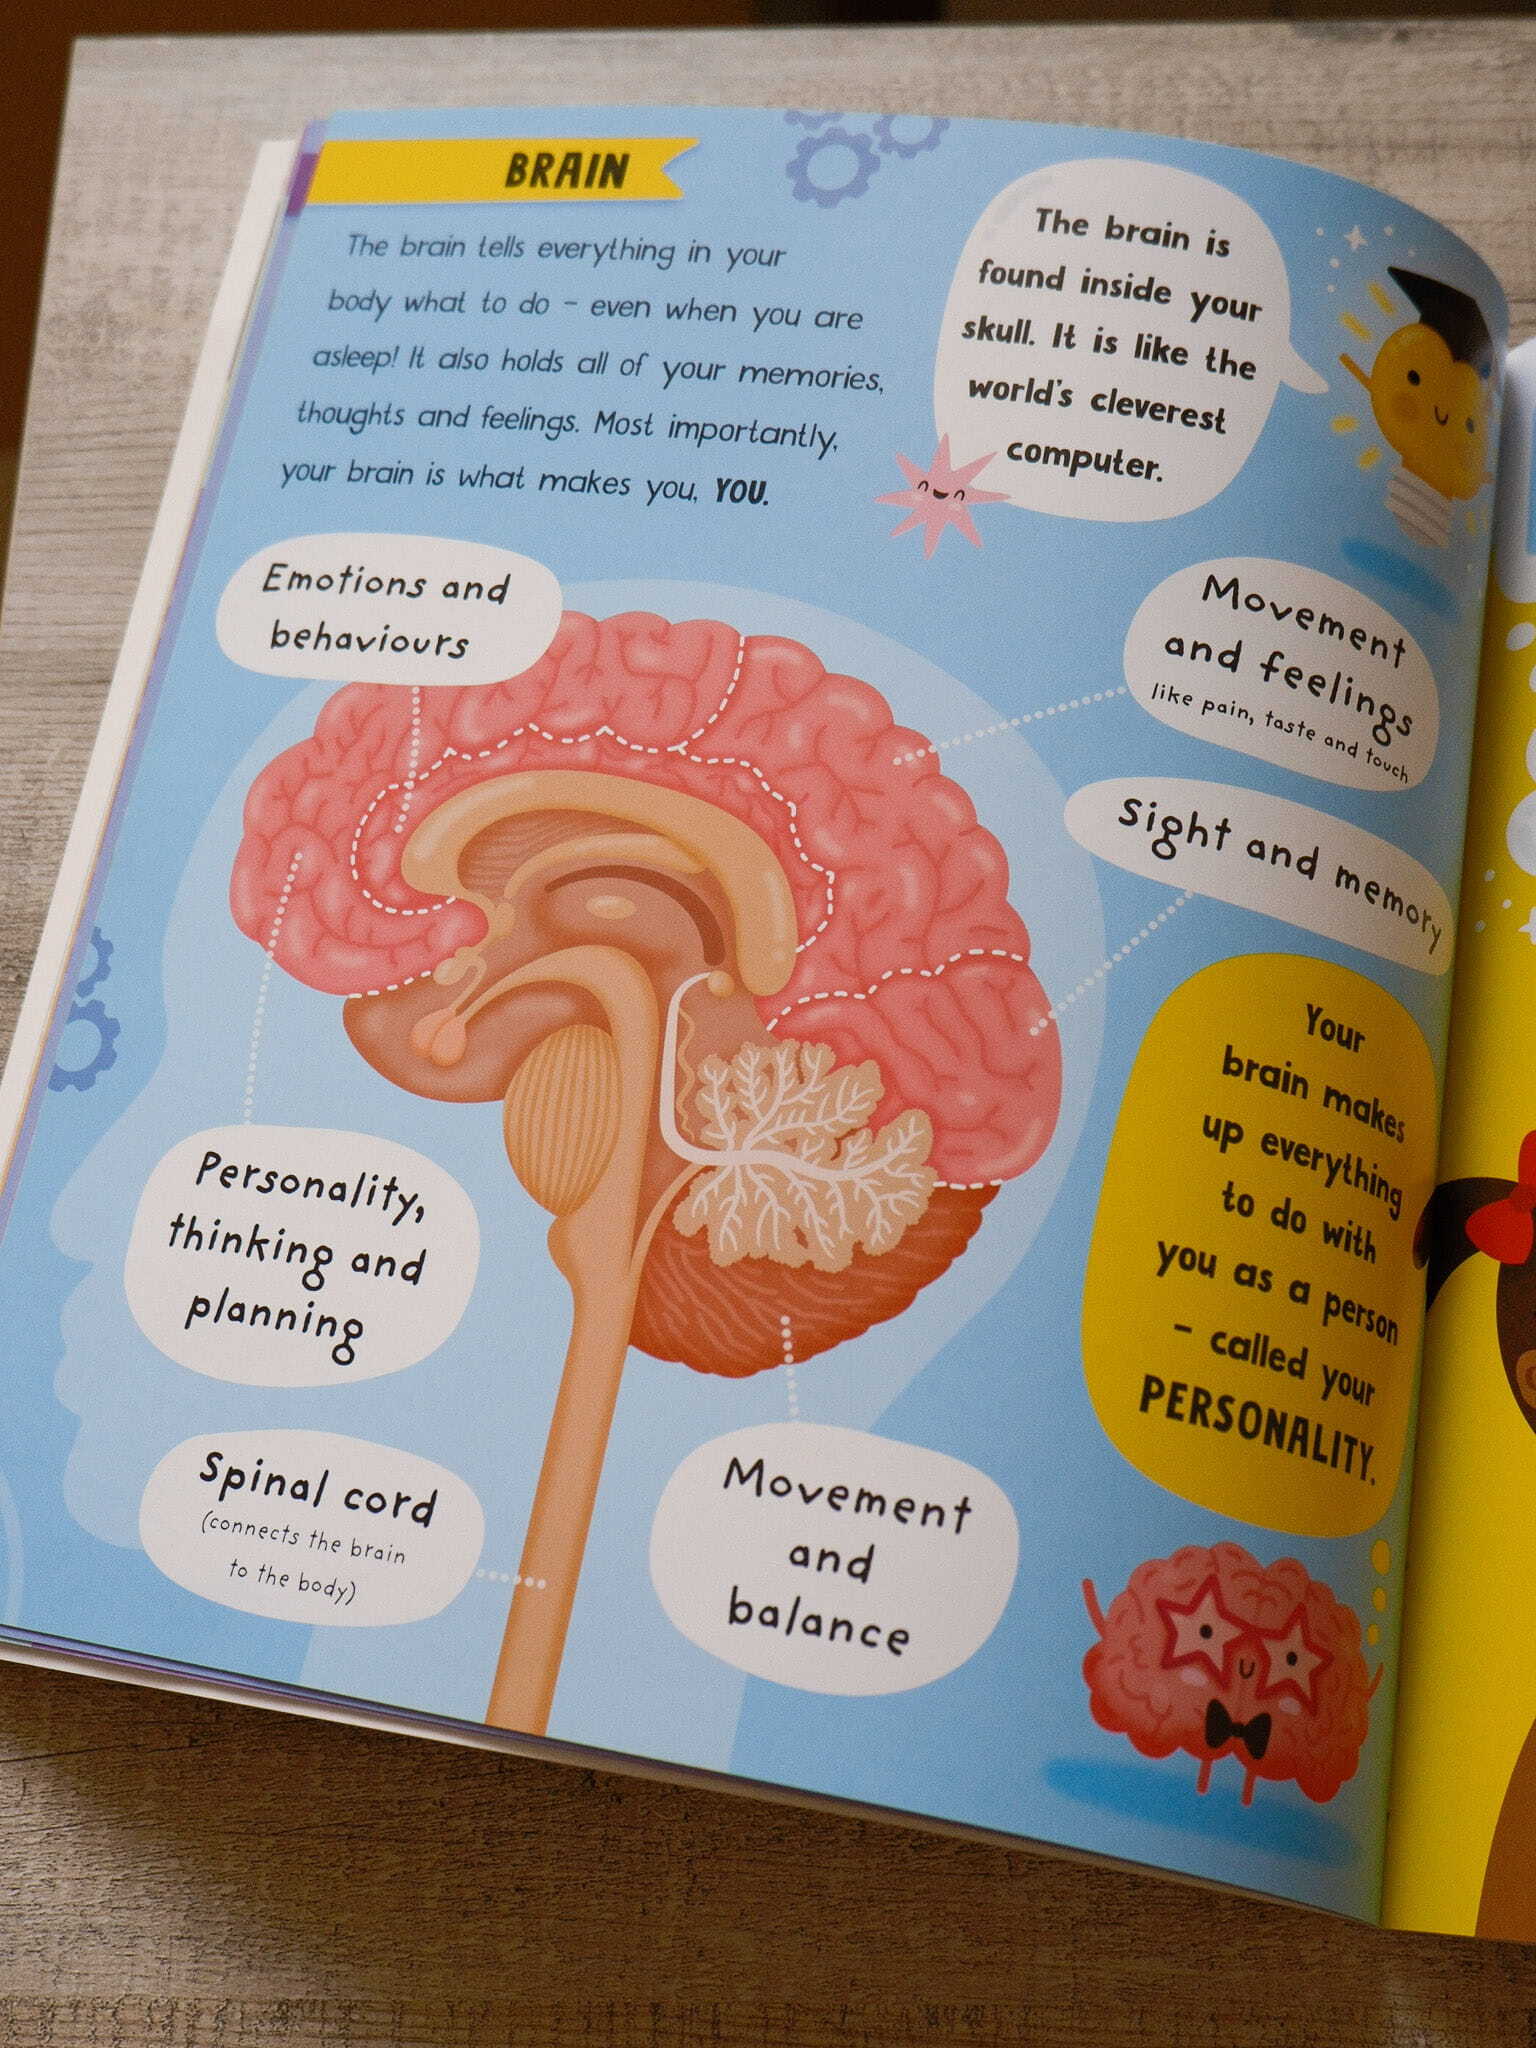 BRAIN
The brain tells everything in your
body what to do – even when you are
asleep! It also holds all of your memories,
thoughts and feelings. Most importantly,
your brain is what makes you, YOU.
The brain is
found inside your
skull. It is like the
world's cleverest
computer.
Emotions and
behaviours
Movement
and feelings
like pain, taste and touch
Sight and memory
Your
brain makes
up everything
to do with
you as a person
– called your
PERSONALITY.
Personality,
thinking and
planning
Spinal cord
(connects the brain
to the body)
Movement
and
balance